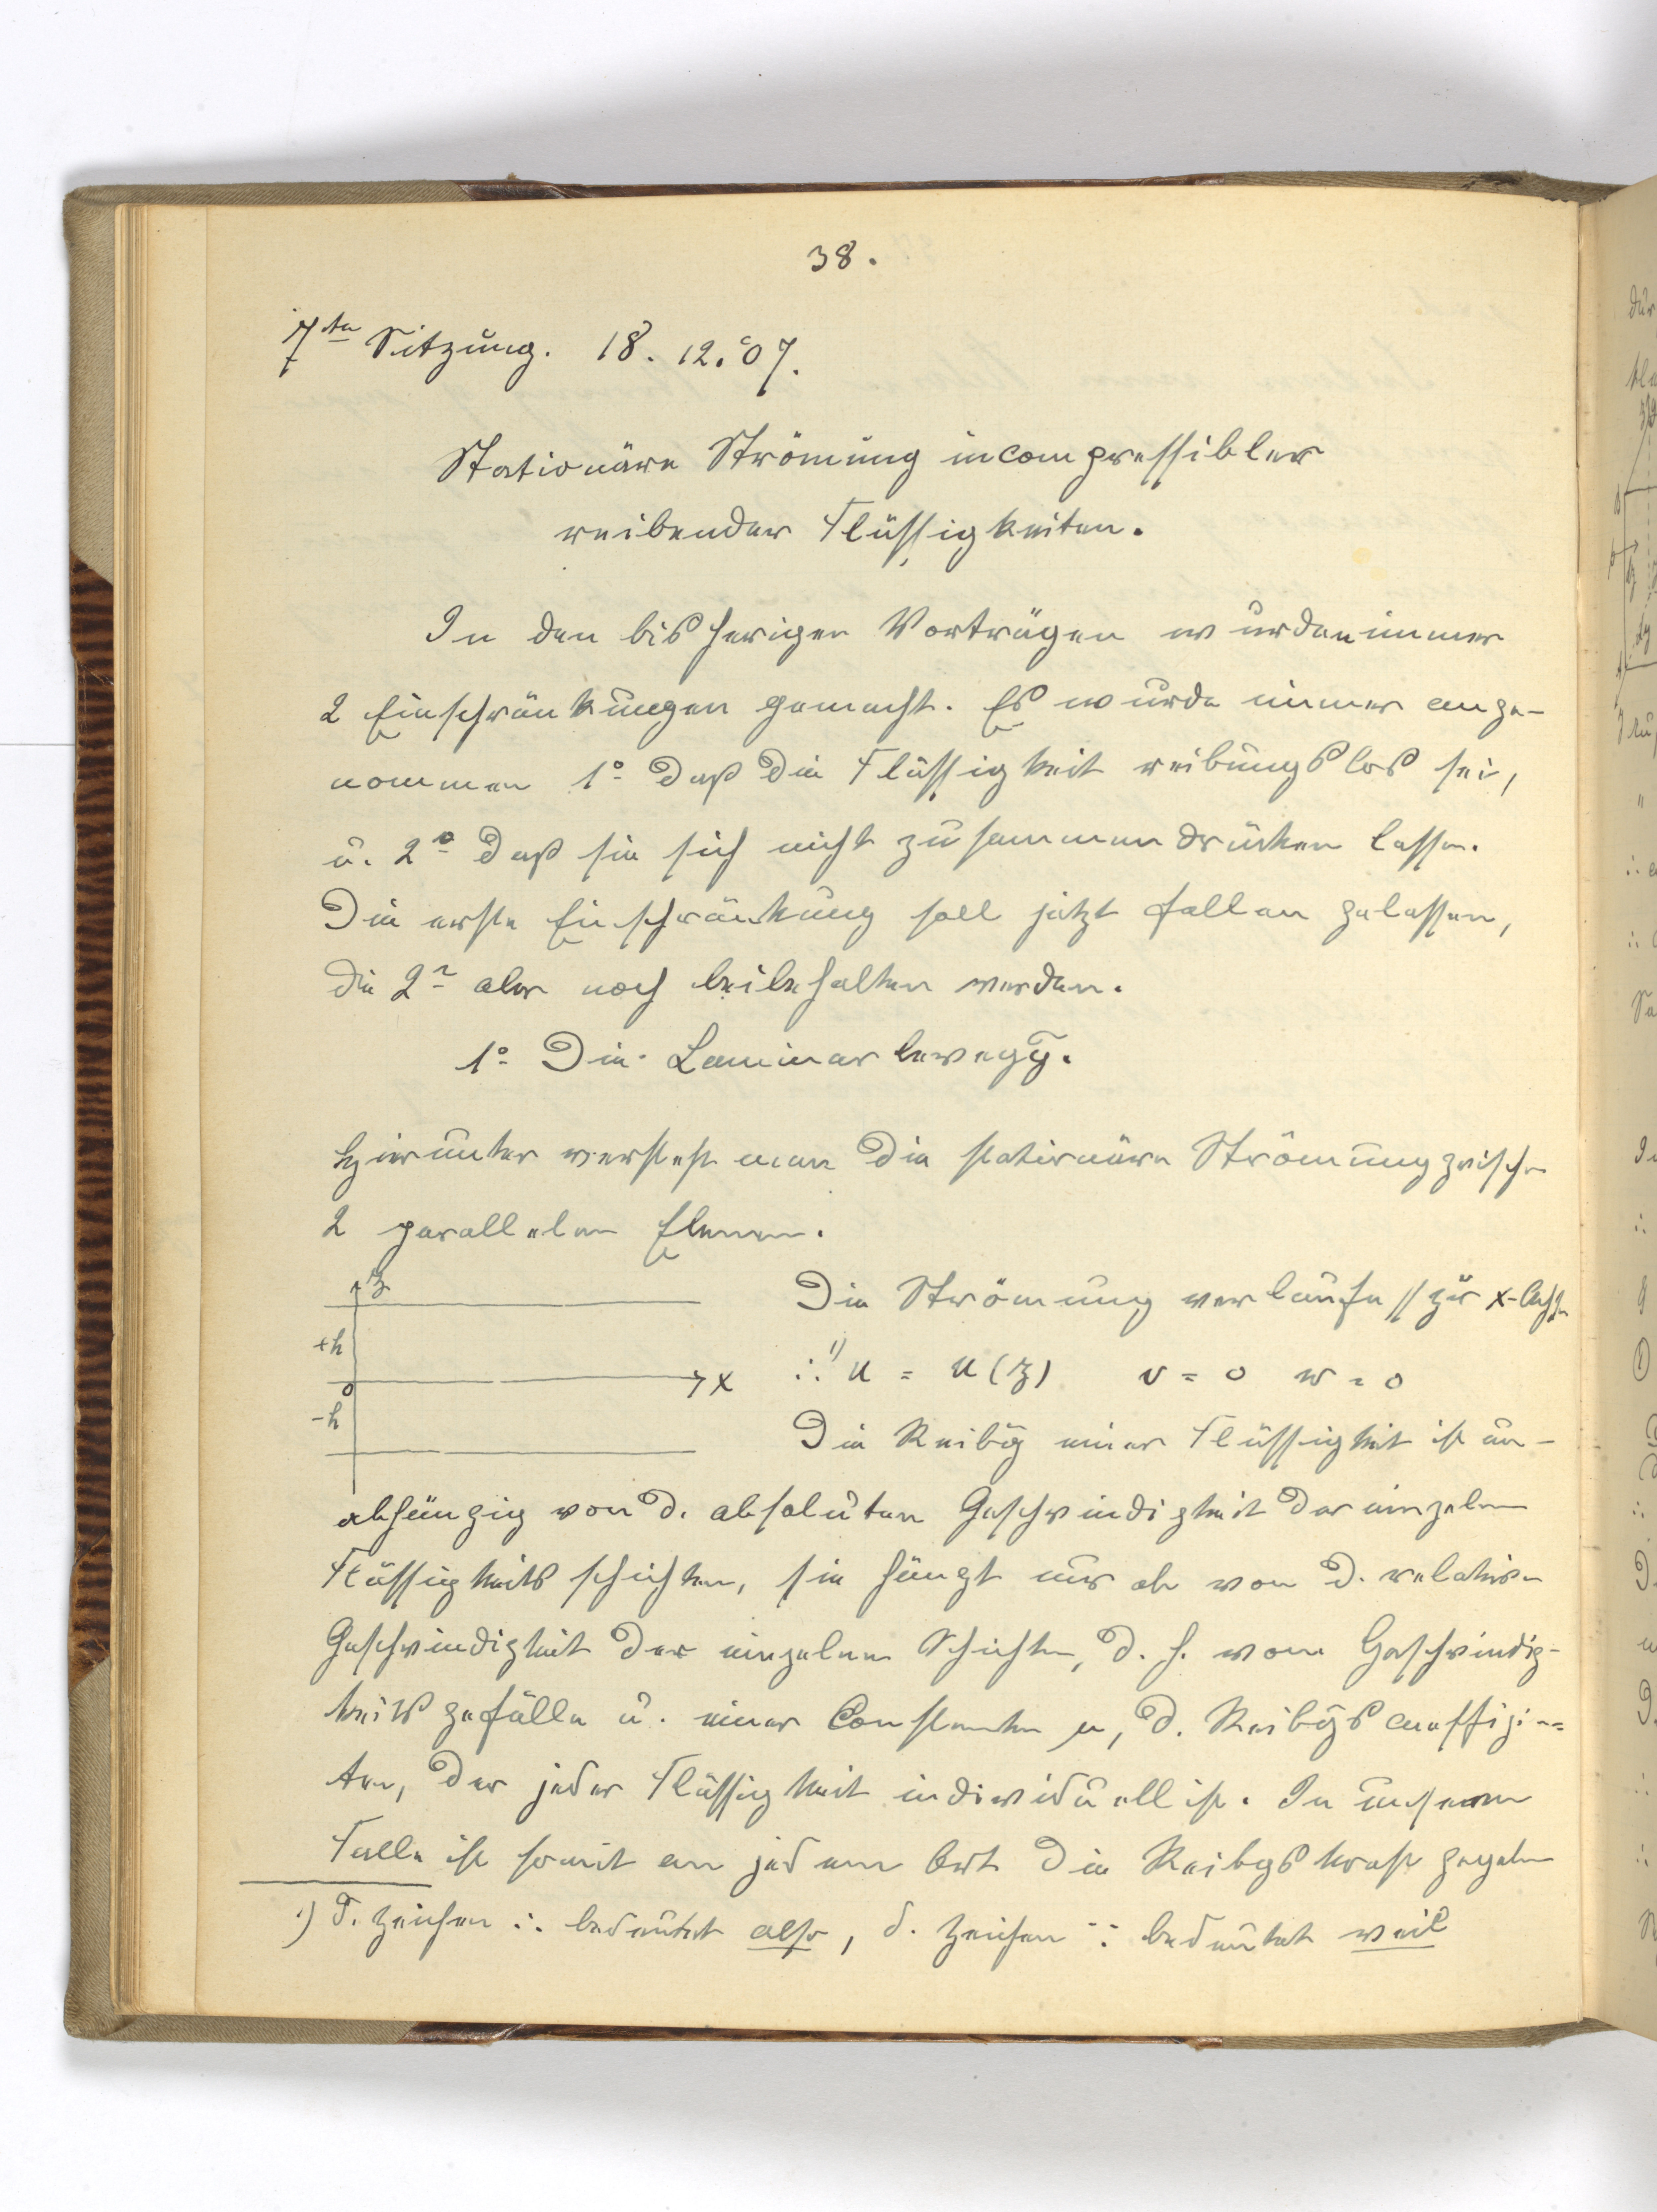 38.
7te Sitzung. 18. 12. 07.
Stationäre Strömung incompressibler
reibender Flüssigkeiten.
In den bisherigen Vorträgen wurden immer
2 Einschränkungen gemacht. Es wurde immer ange-
nommen 1° daß die Flüssigkeit reibungslos sei,
u. 2° daß sie sich nicht zusammendrücken lasse.
Die erste Einschränkung soll jetzt fallen gelassen,
die 2te aber noch beibehalten werden.
1° Die Laminarbewegg.
Hierunter versteht man die stationäre Strömung zwischen
2 parallelen Ebenen.
z
+h
0
-h
x
Die Strömung verlaufe // zur x-Achse
∴ 1) u = u(z) v = 0 w = 0
Die Reibg einer Flüssigkeit ist un-
abhängig von d. absoluten Geschwindigkeit der einzelnen
Flüssigkeitsschichten, sie hängt nur ab von d. relativen
Geschwindigkeit der einzelnen Schichten, d. h. vom Geschwindig-
keitsgefälle u. einer Constanten μ, d. Reibgscoeffizien-
ten, der jeder Flüssigkeit individuell ist. In unserem
Falle ist somit an jedem Ort die Reibgskraft gegeben
1) d. Zeichen ∴ bedeutet also, d. Zeichen ∵ bedeutet weil